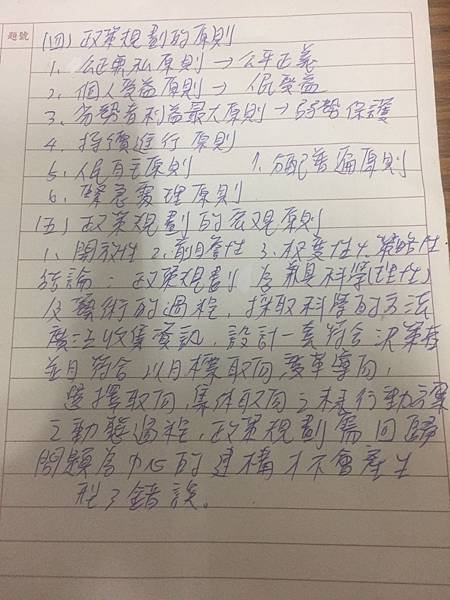 題號
(四) 政策規劃的原則
1. 公正無私原則 → 公平正義
2. 個人受益原則 → 人民受益
3. 劣勢者利益最大原則 → 弱勢保護
4. 持續進行原則
5. 人民自主原則 7. 分配普遍原則
6. 緊急處理原則
(五) 政策規劃的宏觀原則
1. 開放性 2. 前瞻性 3. 權變性 4. 策略性
結論：政策規劃為兼具科學(理性)
及藝術的過程，採取科學的方法
廣泛收集資訊，設計一套符合決策
並且符合以目標取向，變革導向，
選擇取向，集体取向之行動方案
之動態過程，政策規劃需回歸
問題為中心的建構才不會產生
型3錯誤。